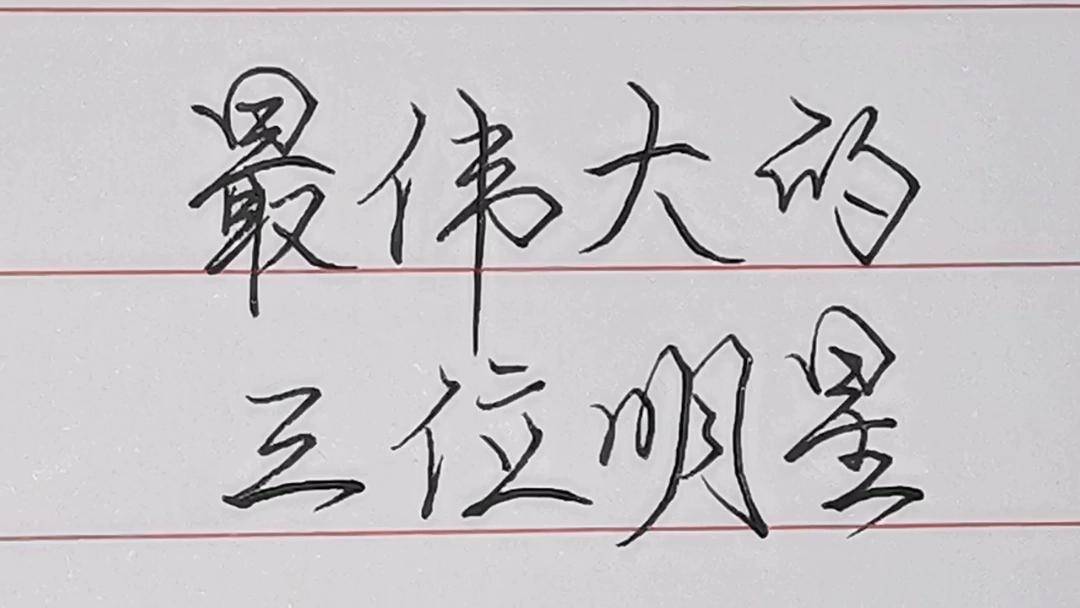 最伟大的
三位明星